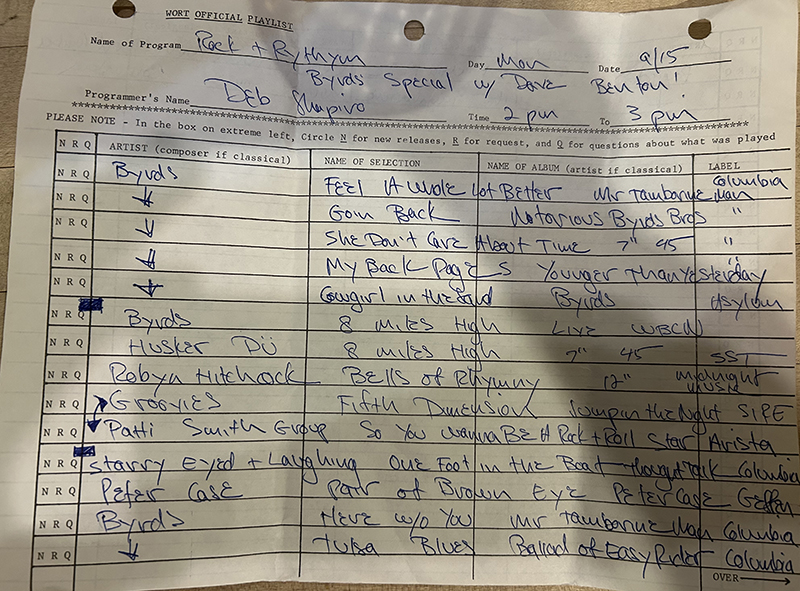 WORT OFFICIAL PLAYLIST
Name of Program Rock + Rythym Day Mon Date 9/15
Byrds Special w/ Dave Benton!
Programmer's Name DEB Shapiro Time 2 pm To 3 pm
*****************************************************************
PLEASE NOTE - In the box on extreme left, Circle N for new releases, R for request, and Q for questions about what was played
N R Q ARTIST (composer if classical) NAME OF SELECTION NAME OF ALBUM (artist if classical) LABEL
N R Q Byrds FEEL A Whole Lot Better Mr Tambourine Man Columbia
N R Q ↓ Goin Back Notorious Byrds Bros "
N R Q ↓ She Don't Care About Time 7" 45 "
N R Q ↓ My Back Pages Younger Than Yesterday "
N R Q ↓ Cowgirl in the Sand Byrds Asylum
N R Q Byrds 8 miles High LIVE WBCN
N R Q Husker Dü 8 miles High 7" 45 SST
N R Q Robyn Hitchcock Bells of Rhymny 12" midnight music
N R Q Groovies Fifth Dimension Jumpin the Night SIRE
N R Q Patti Smith Group So You Wanna Be A Rock + Roll Star Arista
N R Q Starry Eyed + Laughing One Foot in the Boat Thought Talk Columbia
N R Q Peter Case Pair of Brown Eye Peter Case Geffen
N R Q Byrds Here w/o You Mr Tambourine Man Columbia
N R Q ↓ Tulsa Blues Ballad of Easy Rider Columbia
OVER